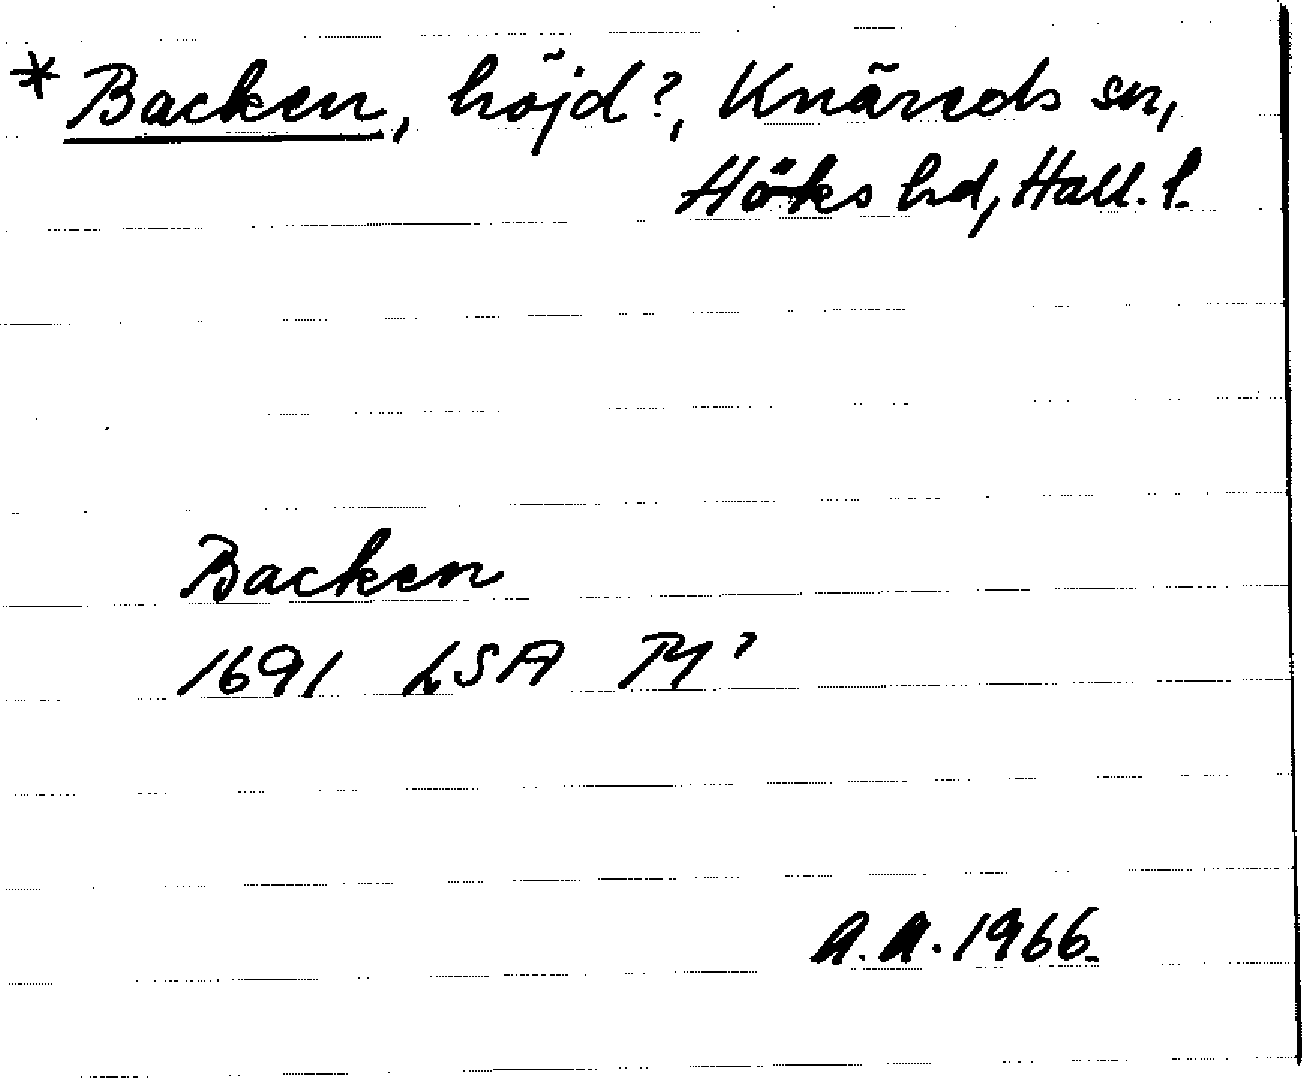 * Backen, höjd?, Knäreds sn,
Höks hd, Hall. l.
Backen
1691 LSA
A.A. 1966